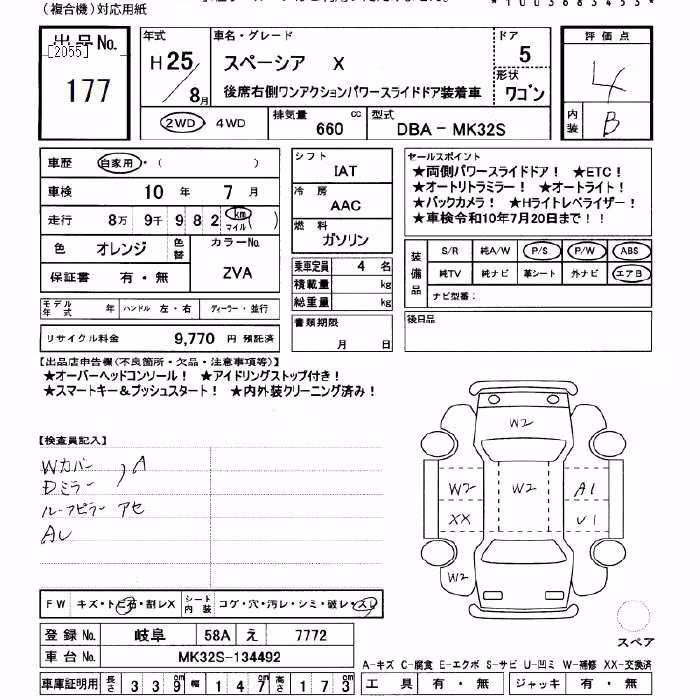 (複合機)対応用紙
*1003683453*
出品No.
[2055]
177
年式
H25/8月
車名・グレード
スペーシア X
後席右側ワンアクションパワースライドドア装着車
ドア
5
形状
ワゴン
2WD・4WD
排気量 660 cc
型式 DBA-MK32S
評価点
4
内装
B
車歴 自家用・( )
車検 10年 7月
走行 8万 9千 9 8 2 km マイル ( )
色 オレンジ 色替
カラーNo. ZVA
保証書 有・無
モデル年式 年 ハンドル 左・右 ディーラー・並行
リサイクル料金 9,770 円 預託済
シフト
IAT
冷房
AAC
燃料
ガソリン
乗車定員 4 名
積載量 kg
総重量 kg
書類期限
月 日
セールスポイント
★両側パワースライドドア! ★ETC!
★オートリトラミラー! ★オートライト!
★バックカメラ! ★Hライトレベライザー!
★車検令和10年7月20日まで!!
装備品
S/R 純A/W P/S P/W ABS
純TV 純ナビ 革シート 外ナビ エアB
ナビ型番:
後日品
【出品店申告欄(不良箇所・欠品・注意事項等)】
★オーバーヘッドコンソール! ★アイドリングストップ付き!
★スマートキー&プッシュスタート! ★内外装クリーニング済み!
【検査員記入】
Wカバー
Dミラー
)A
ルーフピラー アセ
AU
W2
W2 W2 A1
XX U1
W2
スペア
FW キズ・トビ石・割レX シート内装 コゲ・穴・汚レ・シミ・破レ・スレ
登録No. 岐阜 58A え 7772
車台No. MK32S-134492
車庫証明用 長さ 339cm 幅 147cm 高さ 173cm
A-キズ C-腐食 E-エクボ S-サビ U-凹ミ W-補修 XX-交換済
工具 有・無 ジャッキ 有・無